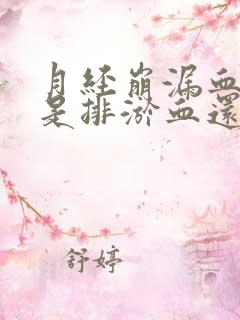 月經崩漏血
是排淤血還
舒婷